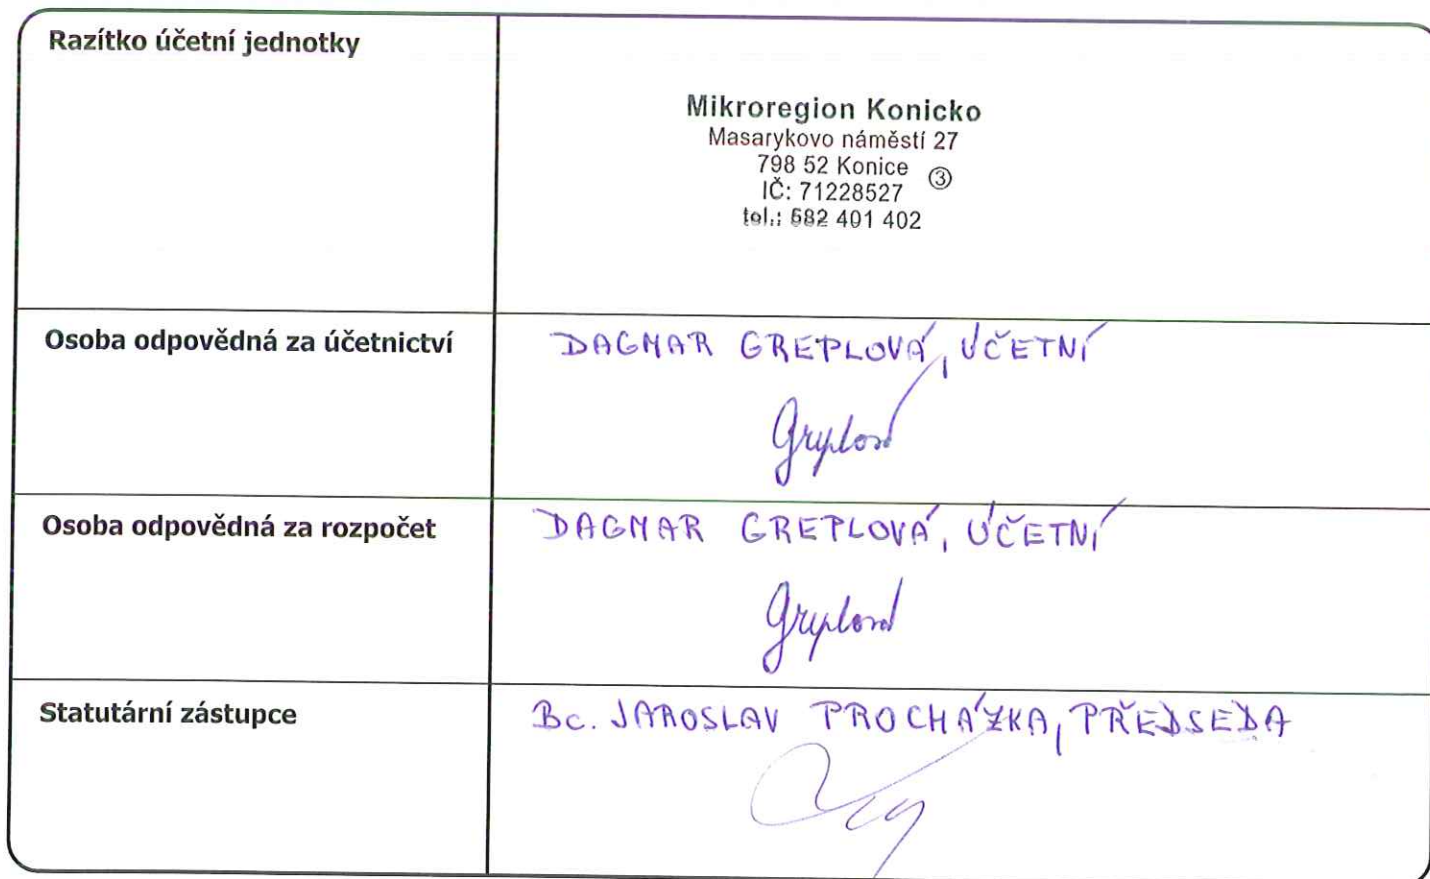 Razítko účetní jednotky
Mikroregion Konicko
Masarykovo náměstí 27
798 52 Konice
③
IČ: 71228527
tel.: 582 401 402
Osoba odpovědná za účetnictví
DAGMAR GREPLOVÁ, ÚČETNÍ
Greplová
Osoba odpovědná za rozpočet
DAGMAR GREPLOVÁ, ÚČETNÍ
Greplová
Statutární zástupce
Bc. JAROSLAV PROCHÁZKA, PŘEDSEDA